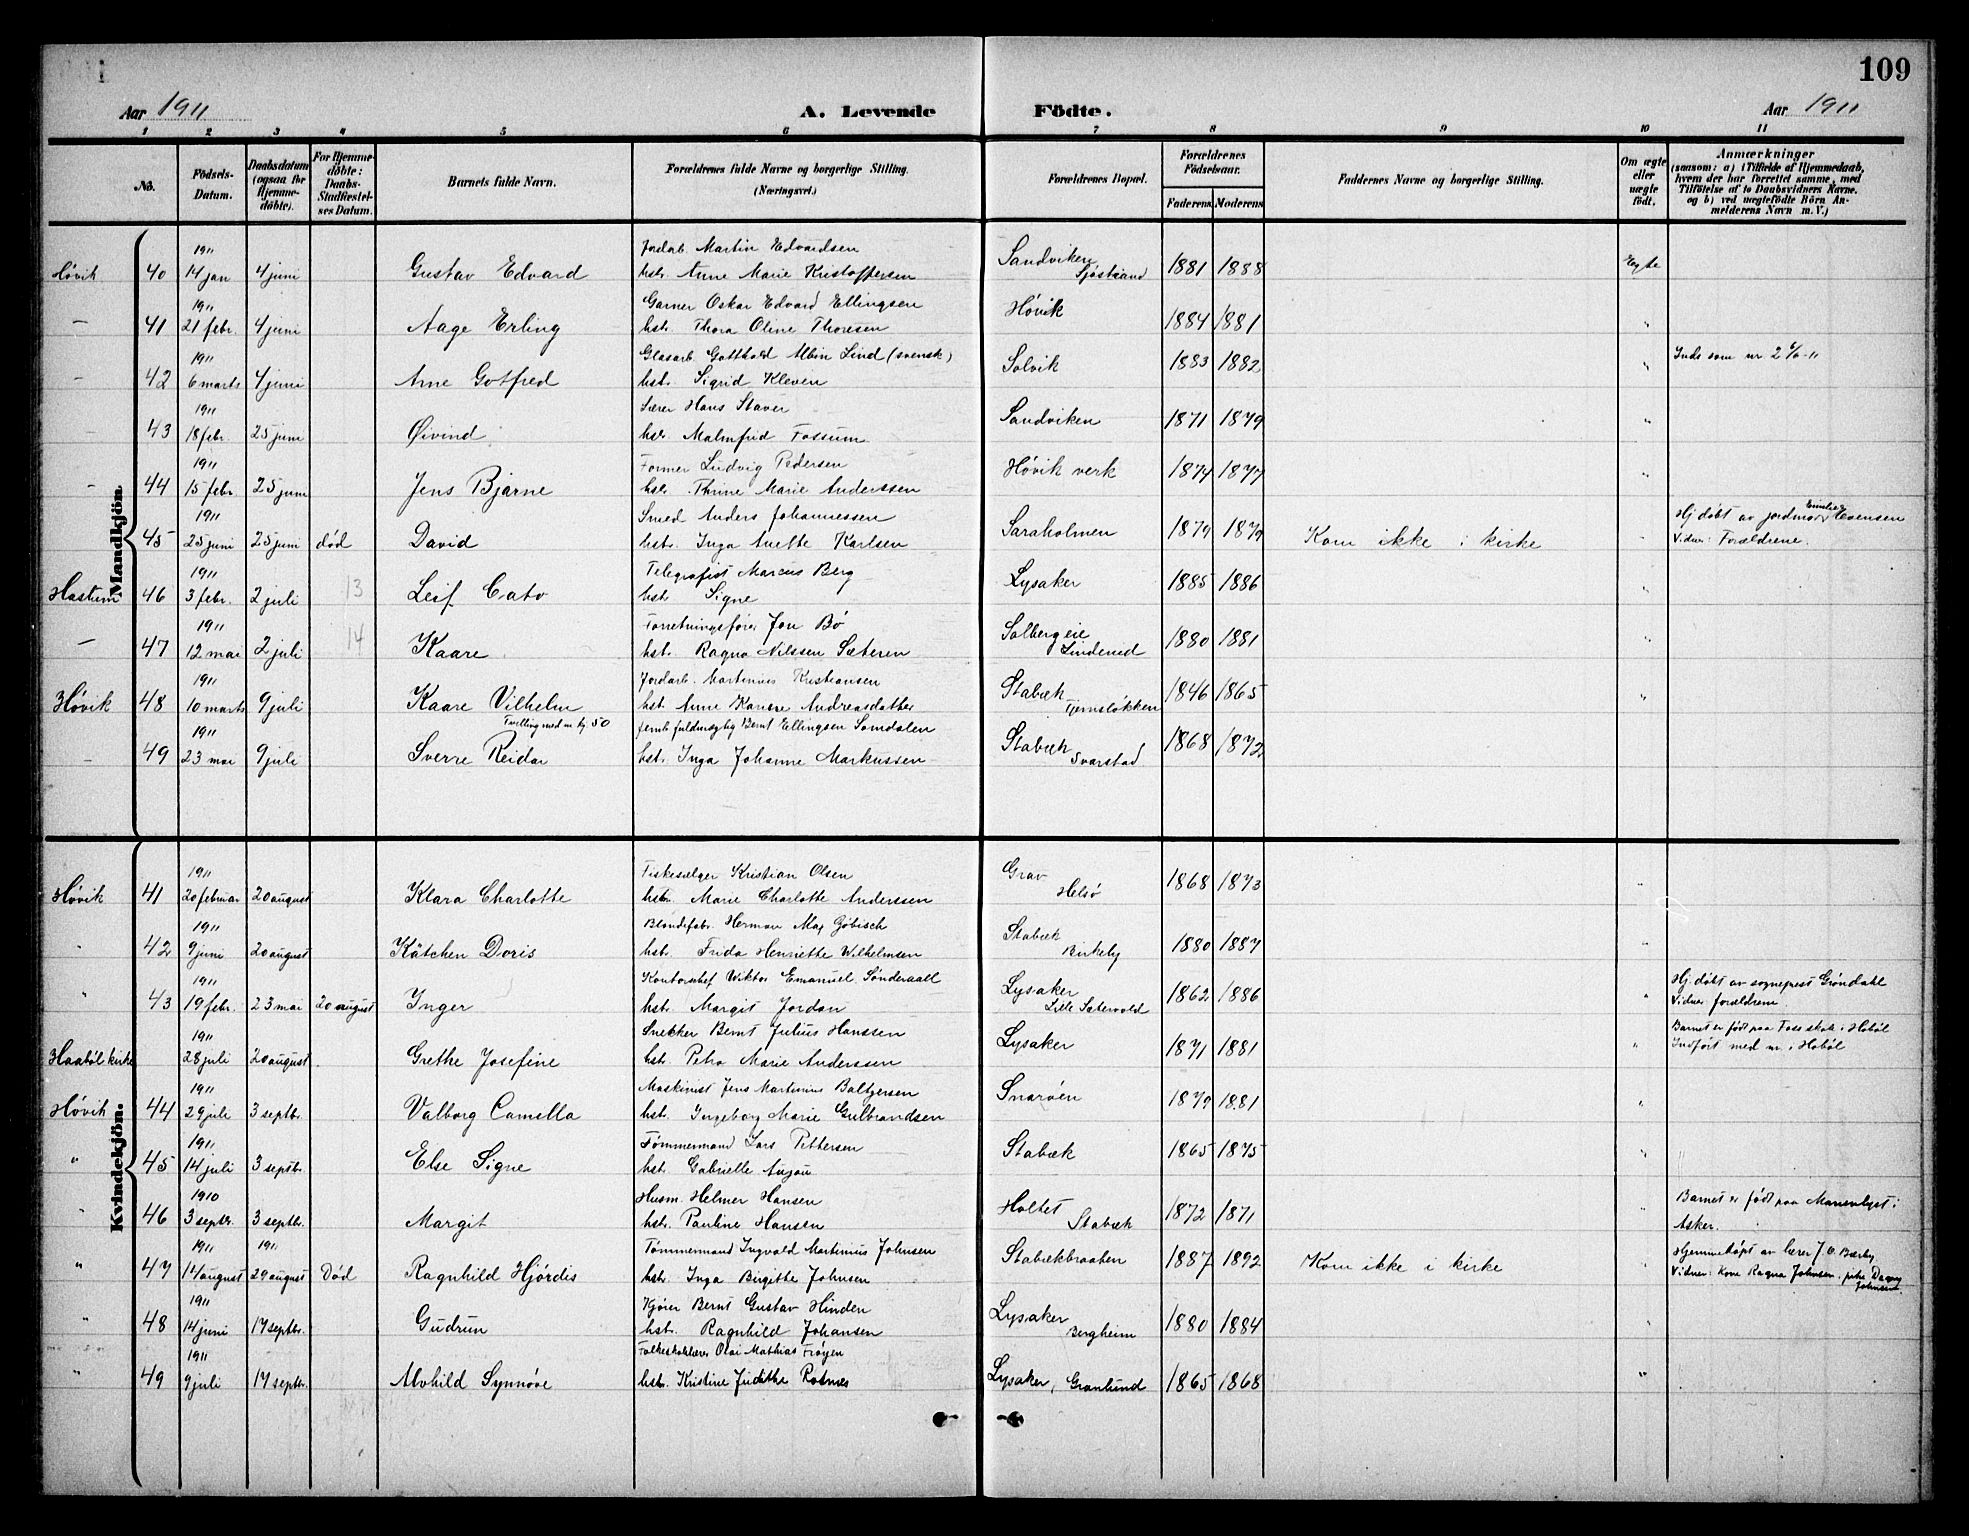 109
Aar 1911
A. Levende Födte.
Aar 1911
1 2 3 4 5 6 7 8 9 10 11
No.
Födsels-Datum.
Daabsdatum (ogsaa for Hjemme-döbte).
For Hjemme-döbte: Daabs-Stadfæstel-ses Datum.
Barnets fulde Navn.
Forældrenes fulde Navne og borgerlige Stilling. (Næringsvei.)
Forældrenes Bopæl.
Forældrenes Födselsaar.
Faderens Moderens
Faddernes Navne og borgerlige Stilling.
Om ægte eller uægte födt.
Anmærkninger
(saasom: a) i Tilfælde af Hjemmedaab, hvem der har forrettet samme, med Tilföielse af to Daabsvidners Navne. og b) ved uægtefödte Börn An-melderens Navn m. V.)
Mandkjön.
1911 Jordarb. Martin Edvardsen
Høvik 40 14 jan 4 juni Gustav Edvard hstr. Anne Marie Kristoffersen Sandviken Sjøstrand 1881 1888 Egte
1911 Garner Oskar Edvard Ellingsen
— 41 21 febr. 4 juni Aage Erling hstr. Thora Oline Thoresen Høvik 1884 1881 "
1911 Glasarb. Gotthold Albin Lind (svensk)
— 42 6 marts 4 juni Arne Gotfred hst. Sigrid Kleven Solvik 1883 1882 " Inds som nr 2
1911 Lærer Hans Staver
— 43 18 febr. 25 juni Øivind hstr. Malmfrid Fossum Sandviken 1871 1879 "
1911 Former Ludvig Pedersen
— 44 15 febr. 25 juni Jens Bjarne hstr. Thrine Marie Anderssen Høvik verk 1874 1877 "
1911 Smed Anders Johannessen
45 25 juni 25 juni død David hst. Inga Anette Karlsen Saraholmen 1879 1879 Kom ikke i kirke " Hj. døbt av jordmor Emilie Evensen
Vidner: Forældrene.
1911 Telegrafist Marcus Berg
Haslum 46 3 febr. 2 juli 13 Leif Cato hst. Signe Lysaker 1885 1886 "
1911 Forretningsfører Jon Bö
— 47 12 mai 2 juli 14 Kaare hst. Ragna Nilssen Sæteren Solberg eie Lindelied 1880 1881 "
1911 Jordarb. Martinius Kristiansen
Høvik 48 10 marts 9 juli Kaare Vilhelm hst. Anne Karine Andreasdatter Stabæk Tjernsløkken 1846 1865 "
1911 Tvilling med nr kj 50 Jernb fuldmægtig Bernt Ellingsen Somdalen
— 49 23 mai 9 juli Sverre Reidar hst. Inga Johanne Markussen Stabæk Svarstad 1868 1872
Kvindekjön.
1911 Fiskesælger Kristian Olsen
Høvik 41 20 februar 20 august Klara Charlotte hstr. Marie Charlotte Anderssen Grav Helsø 1868 1873 "
1911 Blondefabr. Herman Max Göbisch
" 42 9 juni 20 august Kätchen Doris hst. Frida Henriette Wilhelmsen Stabæk Birkeby 1880 1887 "
1911 Kontorchef Wiktor Emanuel Sønderaall
" 43 19 febr. 23 mai 20 august Inger hst. Margit Jordan Lysaker Lille Sætervold 1862 1886 " Hj. døbt av sogneprest Grøndahl
Vidner forældrene.
1911 Snekker Bernt Julius Hanssen
Haabøl kirke 28 juli 20 august Grethe Josefine hst. Petra Marie Anderssen Lysaker 1871 1881 " Barnet er født paa Foss skole i Hobøl
Indført med nr. i Hobøl
1911 Maskinist Jens Martinius Baltzersen
Høvik 44 29 juli 3 septbr. Valborg Camella hst. Ingeborg Marie Gulbrandsen Snarøen 1879 1881 "
1911 Tømmermand Lars Pettersen
" 45 14 juli 3 septbr. Else Signe hst. Gabrielle Anjou Stabæk 1865 1875 "
1910 Husm. Helmer Hansen
" 46 3 septbr. 3 septbr. Margit hst. Pauline Hansen Holtet Stabæk 1872 1871 Barnet er født paa Marienlyst i
Asker.
1911 1911 Tømmermand Ingvald Martinius Johnsen
" 47 14 august 29 august Død Ragnhild Hjørdis hst. Inga Birgitte Johnsen Stabækbraaten 1887 1892 Kom ikke i kirke " Hjemmedøpt av lærer J. O. Bærby
Vidner: Kone Ragna Johnsen, pike Dagny Johnsen
1911 Kjører Bernt Gustav Hinden
" 48 14 juni 17 septbr. Gudrun hst. Ragnhild Johansen Lysaker Bergheim 1880 1884 "
1911 Folkeskolelærer Olai Mathias Frøyen
" 49 9 juli 17 septbr. Alvhild Synnøve hst. Kristine Judithe Rotnes Lysaker, Granlund 1865 1868 "